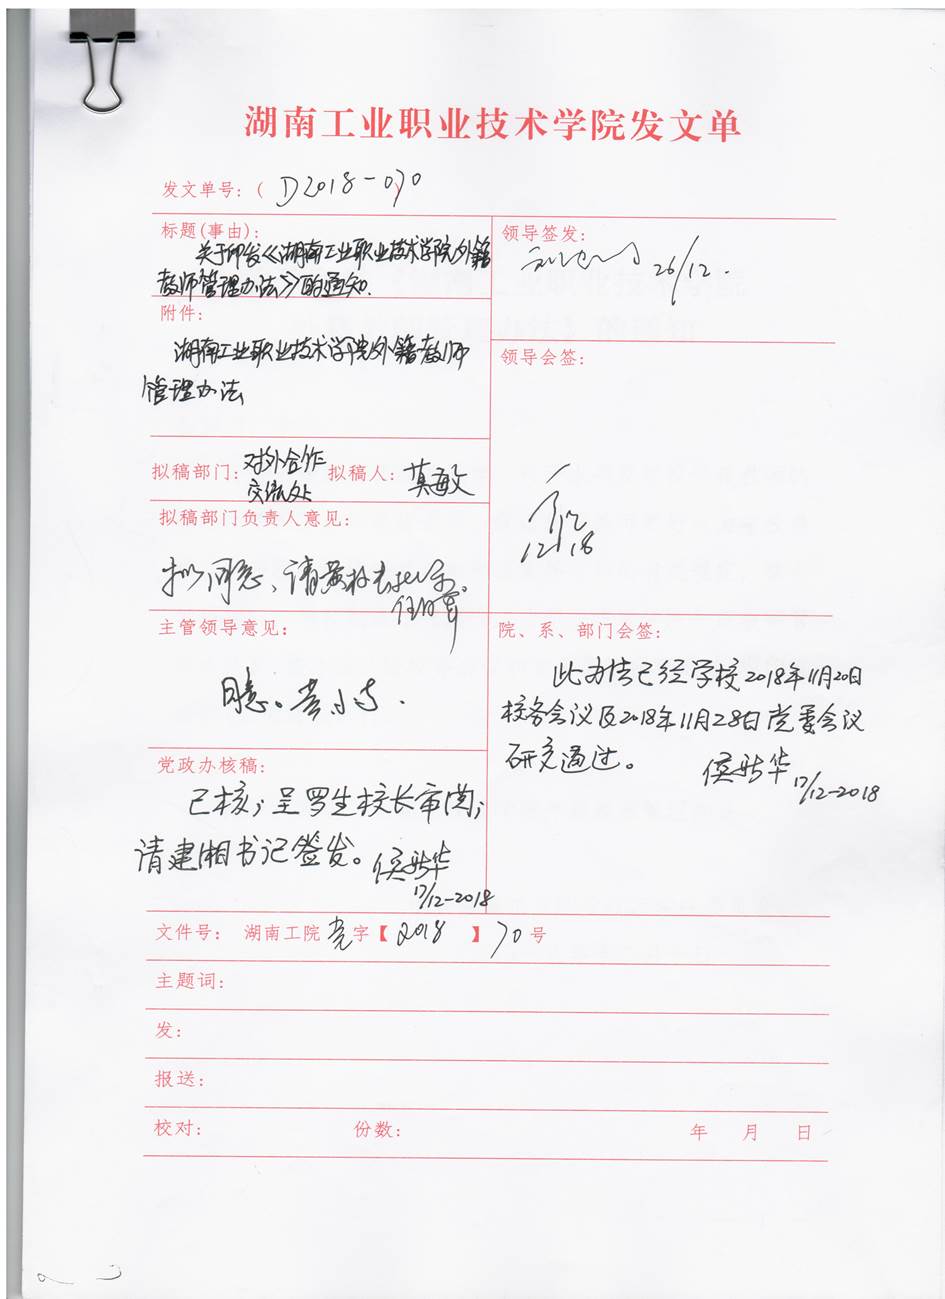 湖南工业职业技术学院发文单
发文单号：( D2018-070
标题(事由)：
关于印发《湖南工业职业技术学院外籍
教师管理办法》的通知.
领导签发：
26/12.
附件：
湖南工业职业技术学院外籍教师
管理办法
领导会签：
12/18
拟稿部门：对外合作
交流处
拟稿人：莫敏
拟稿部门负责人意见：
拟同意、请黄校长批示。
主管领导意见：
同意。黄
院、系、部门会签：
此办法已经学校2018年11月20日
校务会议及2018年11月28日党委会议
研究通过。
侯新华 17/12-2018
党政办核稿：
已核；呈罗生校长审阅；
请建湘书记签发。侯新华
17/12-2018
文件号： 湖南工院党字【2018】70号
主题词：
发：
报送：
校对： 份数： 年 月 日